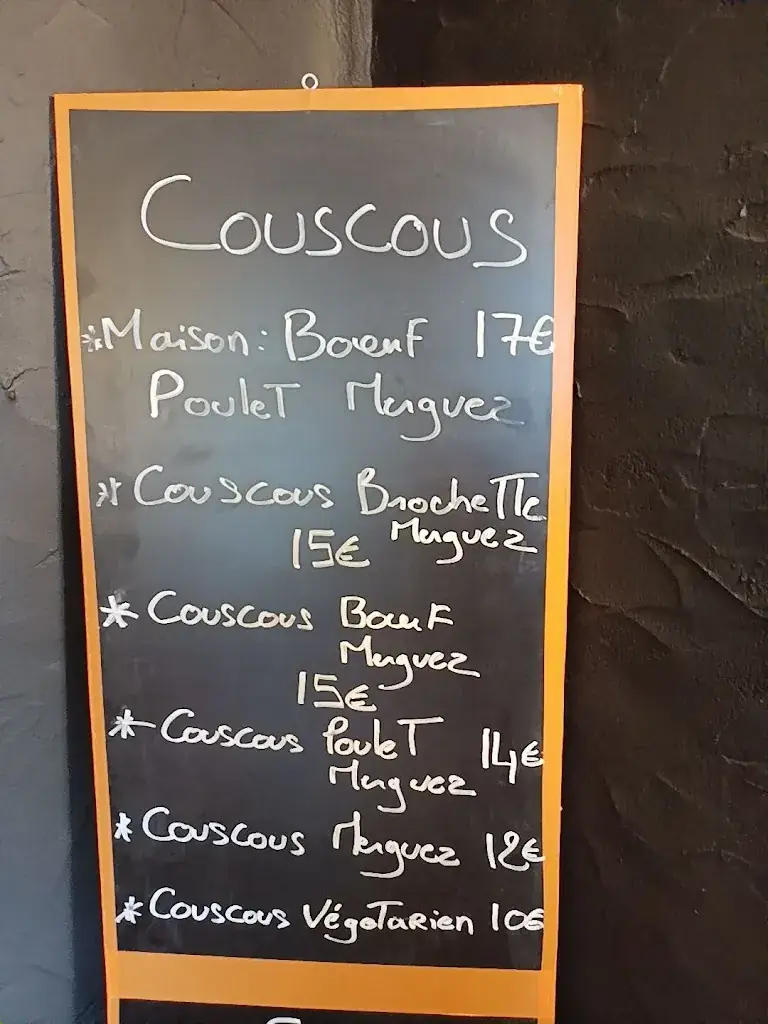 Couscous
*Maison: Boeuf 17€
Poulet Merguez
* Couscous Brochette
Merguez
15€
* Couscous Boeuf
Merguez
15€
* Couscous Poulet 14€
Merguez
* Couscous Merguez 12€
* Couscous Végetarien 10€